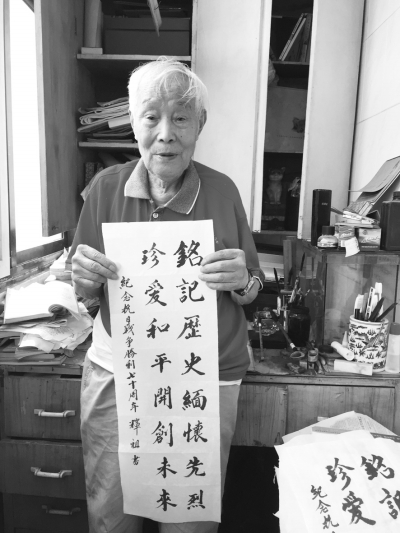 銘記歷史緬懷先烈
珍愛和平開創未來
紀念抗日戰爭勝利七十周年 釋祖書
銘記
珍愛
紀念抗